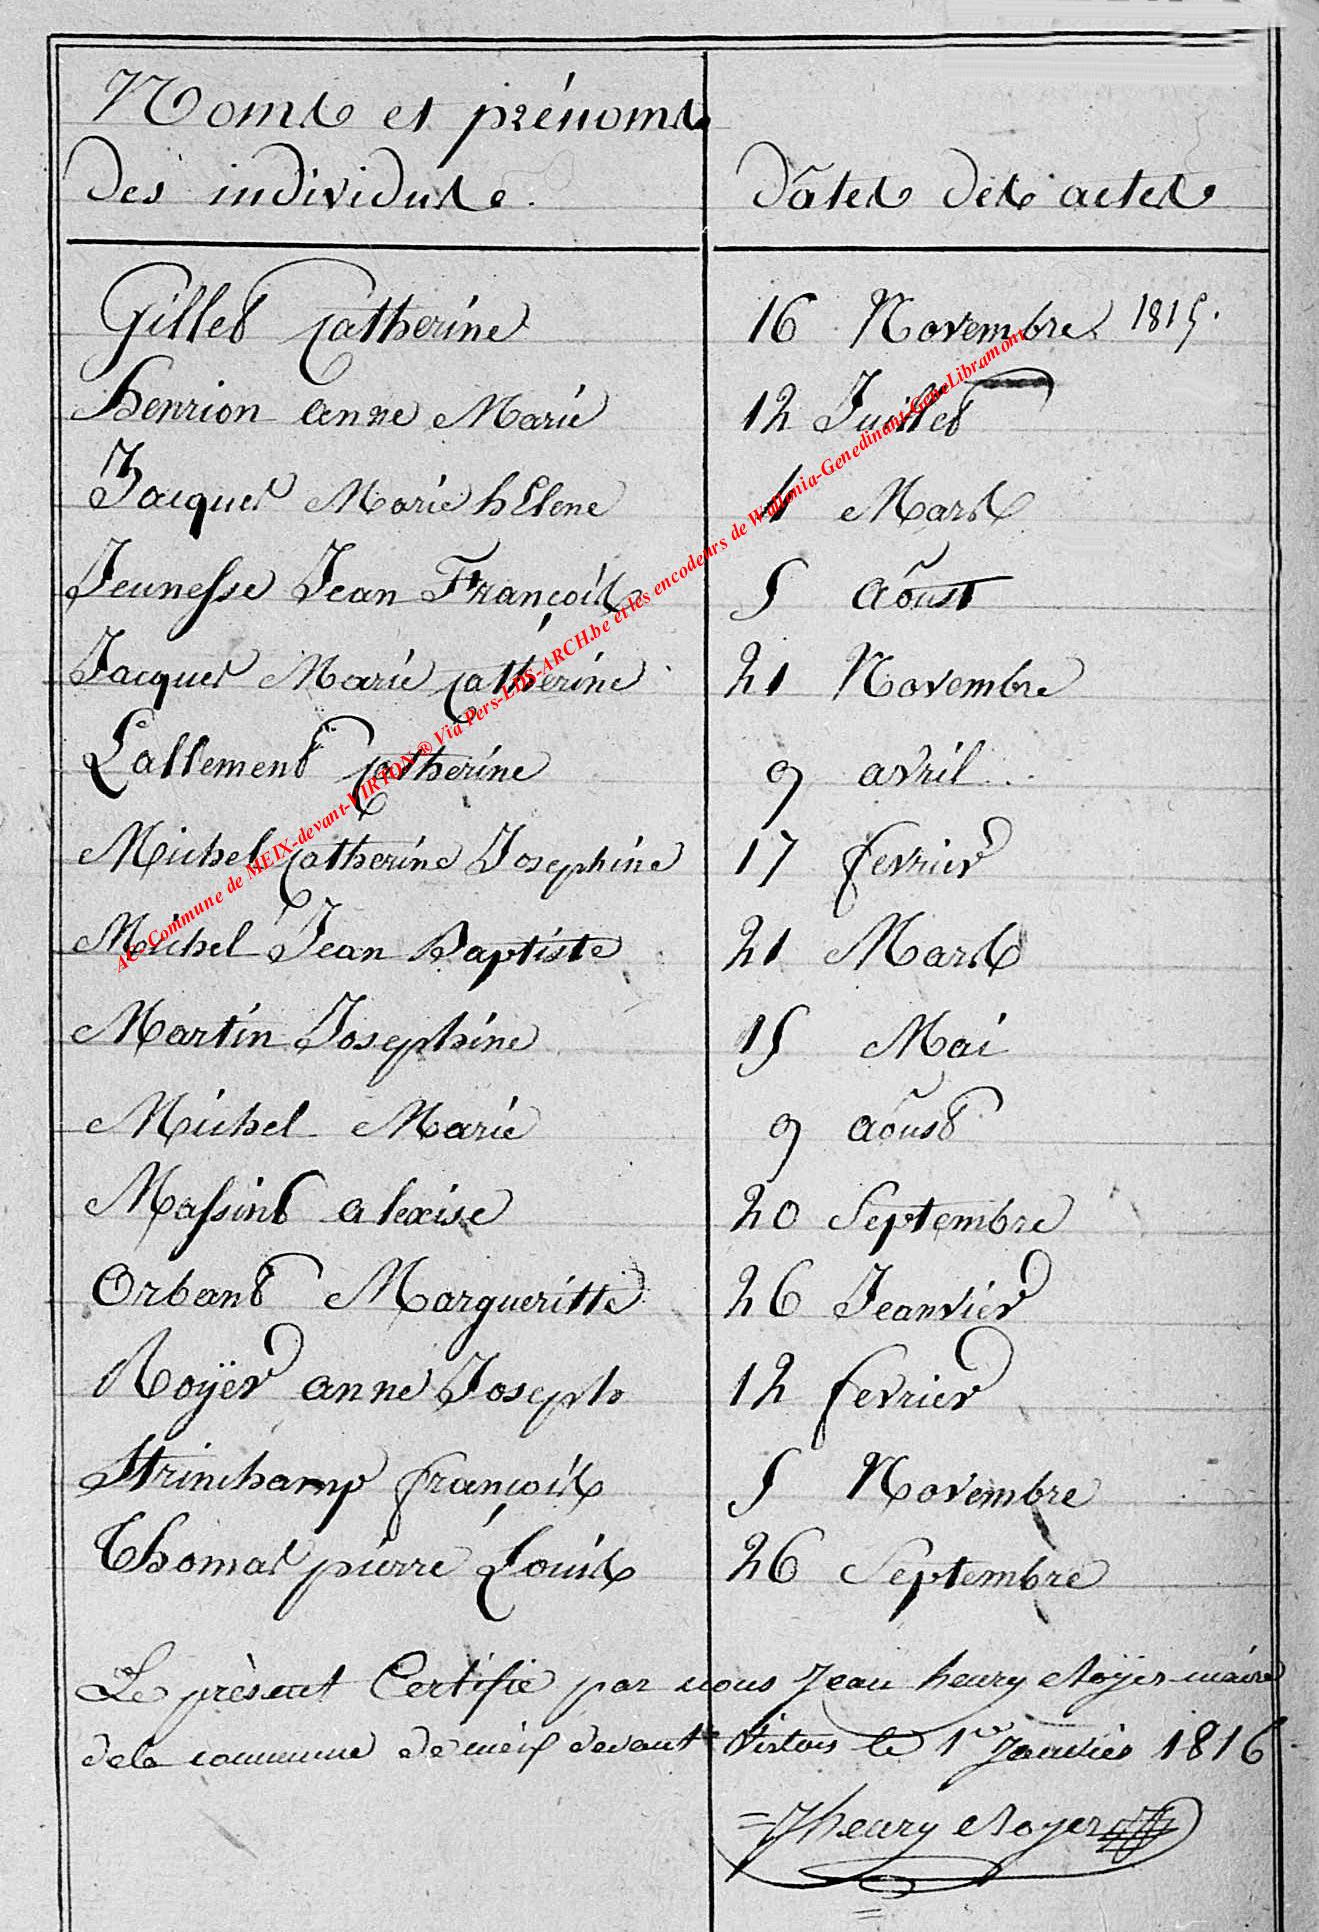 Noms et prénoms
des individus.
Dâtes des actes
Gillet Catherine 16 Novembre 1815.
henrion anne Marie 12 Juillet
Jacques Marie hElene 4 Mars
Jeunesse Jean François 5 Aôust
Jacques Marie Catherine 21 Novembre
Lallement Catherine 9 avril
Michel Catherine Josephine 17 fevrier
Michel Jean Baptiste 21 Mars
Martin Josephine 15 Mai
Michel Marie 9 aôust
Massint alexise 20 Septembre
Orbant Margueritte 26 Jeanvier
Royër anne Joseph 12 fevrier
Strinchamp françois 5 Novembre
Thomas pierre Louis 26 Septembre
Le prèsent Certifié par nous Jean henry Royër maire
dela commune de meix devant Virton le 1er Janvier 1816
Jhenry Royer
AC-Commune de MEIX-devant-VIRTON® Via Pers-LDS-ARCH.be et les encodeurs de Wallonia-Genedinant-GeneLibramont